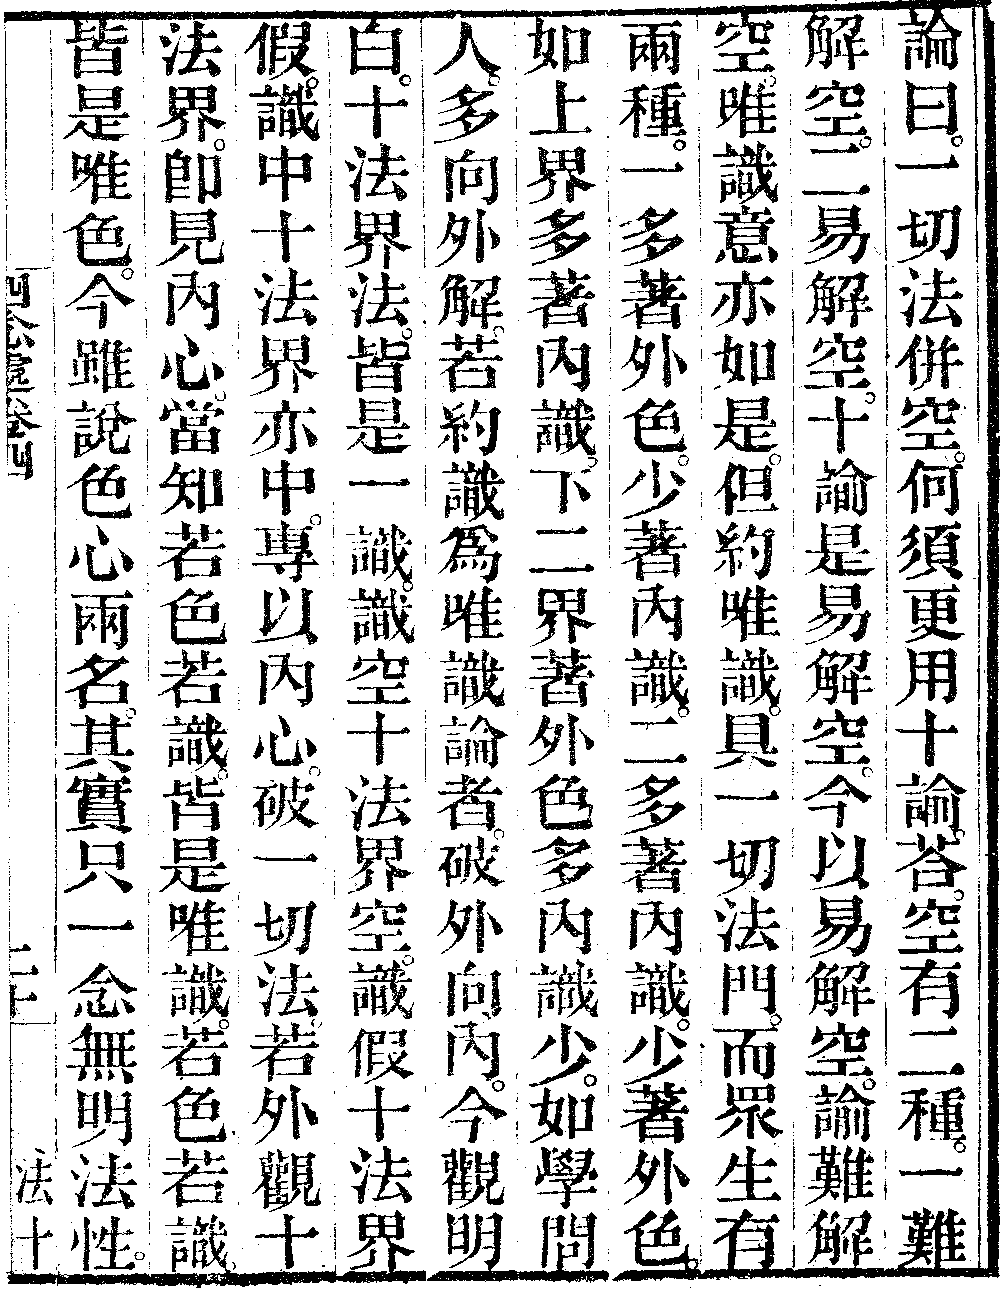 論曰。一切法併空。何須更用十諭。荅。空有二種。一難
解空。二易解空。十諭是易解空。今以易解空。諭難解
空。唯識意亦如是。但約唯識。具一切法門。而眾生有
兩種。一多著外色。少著內識。二多著內識。少著外色。
如上界多著內識。下二界著外色多內識少。如學問
人。多向外解。若約識為唯識論者。破外向內。今觀明
白。十法界法。皆是一識。識空十法界空。識假十法界
假。識中十法界亦中。專以內心。破一切法。若外觀十
法界。卽見內心。當知若色若識。皆是唯識。若色若識
皆是唯色。今雖說色心兩名。其實只一念無明法性。
四念處卷四
二十
法十